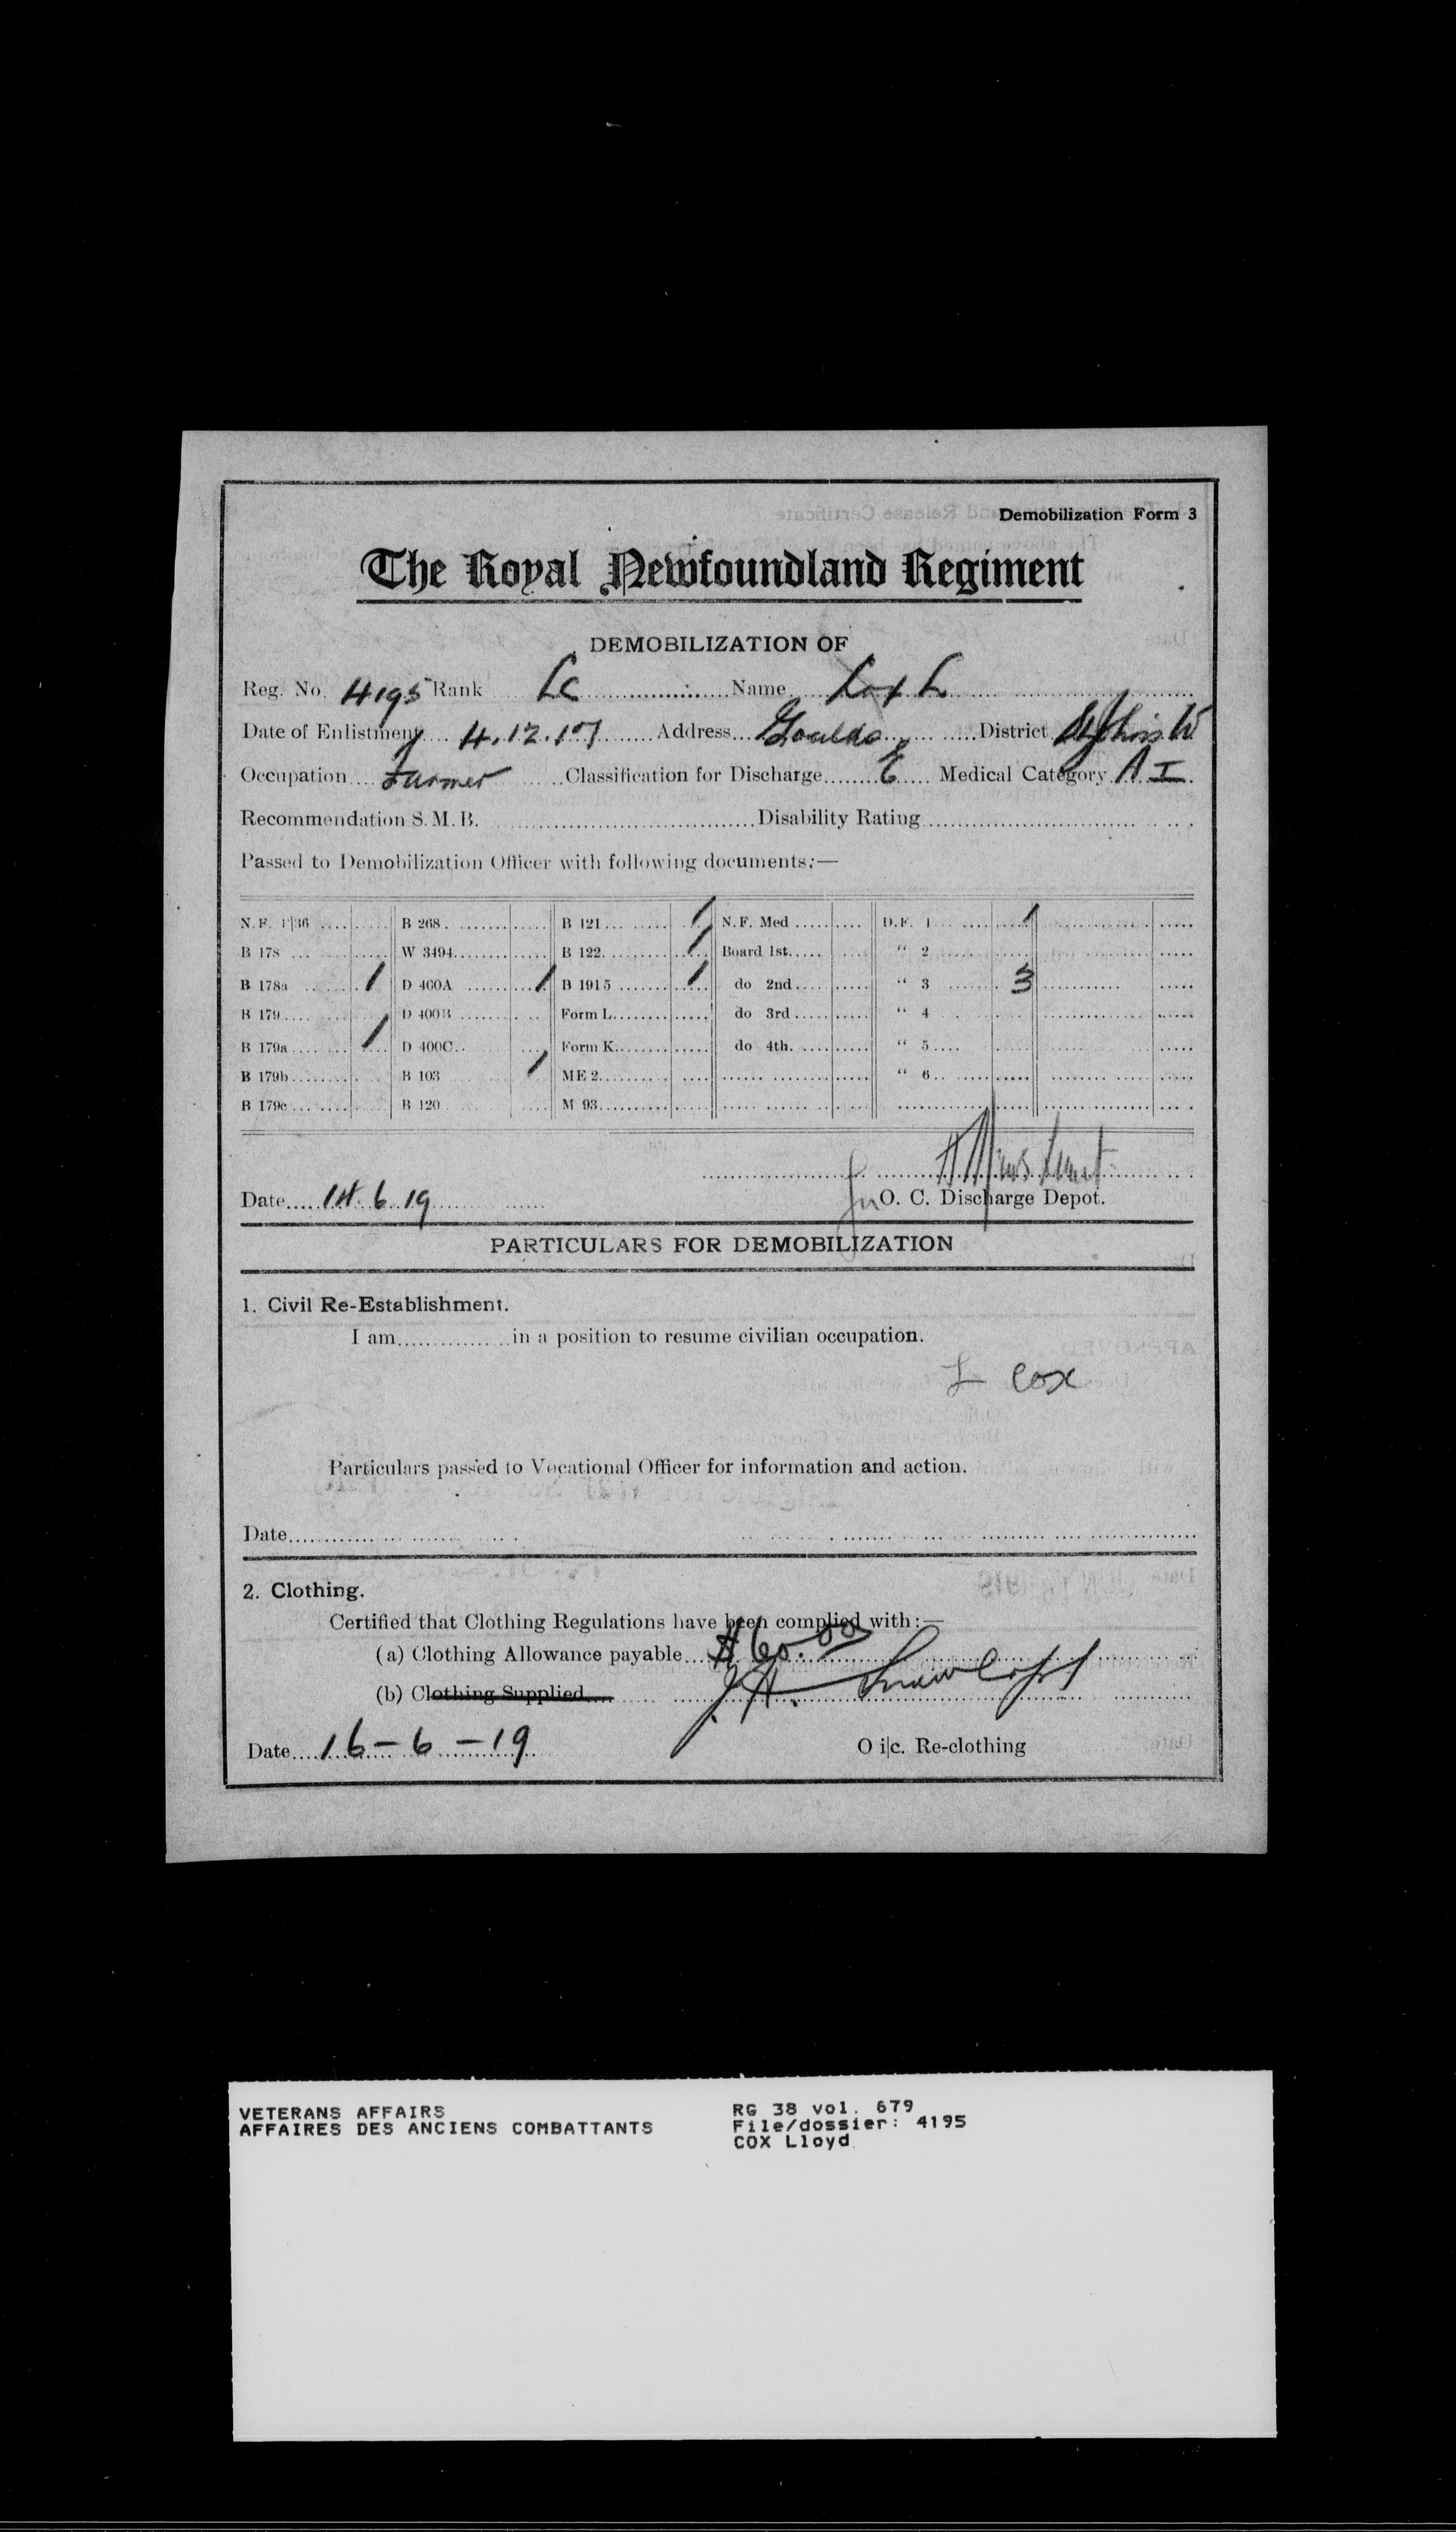 Demobilization Form 3
The Royal Newfoundland Regiment
DEMOBILIZATION OF
Reg. No. 4195 Rank Lc Name Cox L
Date of Enlistment 4.12.17 Address Goulds District St Johns W
Occupation Farmer Classification for Discharge E Medical Category A I
Recommendation S. M. B. Disability Rating
Passed to Demobilization Officer with following documents:—
N. F. 1|36 B 268 B 121 / N. F. Med D. F. 1 /
B 178 W 3494 B 122 / Board 1st " 2
B 178a / D 400A / B 1915 / do 2nd " 3 3
B 179 D 400B Form L do 3rd " 4
B 179a / D 400C Form K do 4th " 5
B 179b B 103 / ME 2 " 6
B 179c B 120 M 93
Date 14.6.19 for O. C. Discharge Depot.
PARTICULARS FOR DEMOBILIZATION
1. Civil Re-Establishment.
I am in a position to resume civilian occupation.
L Cox
Particulars passed to Vocational Officer for information and action.
Date
2. Clothing.
Certified that Clothing Regulations have been complied with:—
(a) Clothing Allowance payable $60.00
(b) Clothing Supplied
Date 16-6-19 O i|c. Re-clothing
VETERANS AFFAIRS RG 38 vol. 679
AFFAIRES DES ANCIENS COMBATTANTS File/dossier: 4195
COX Lloyd